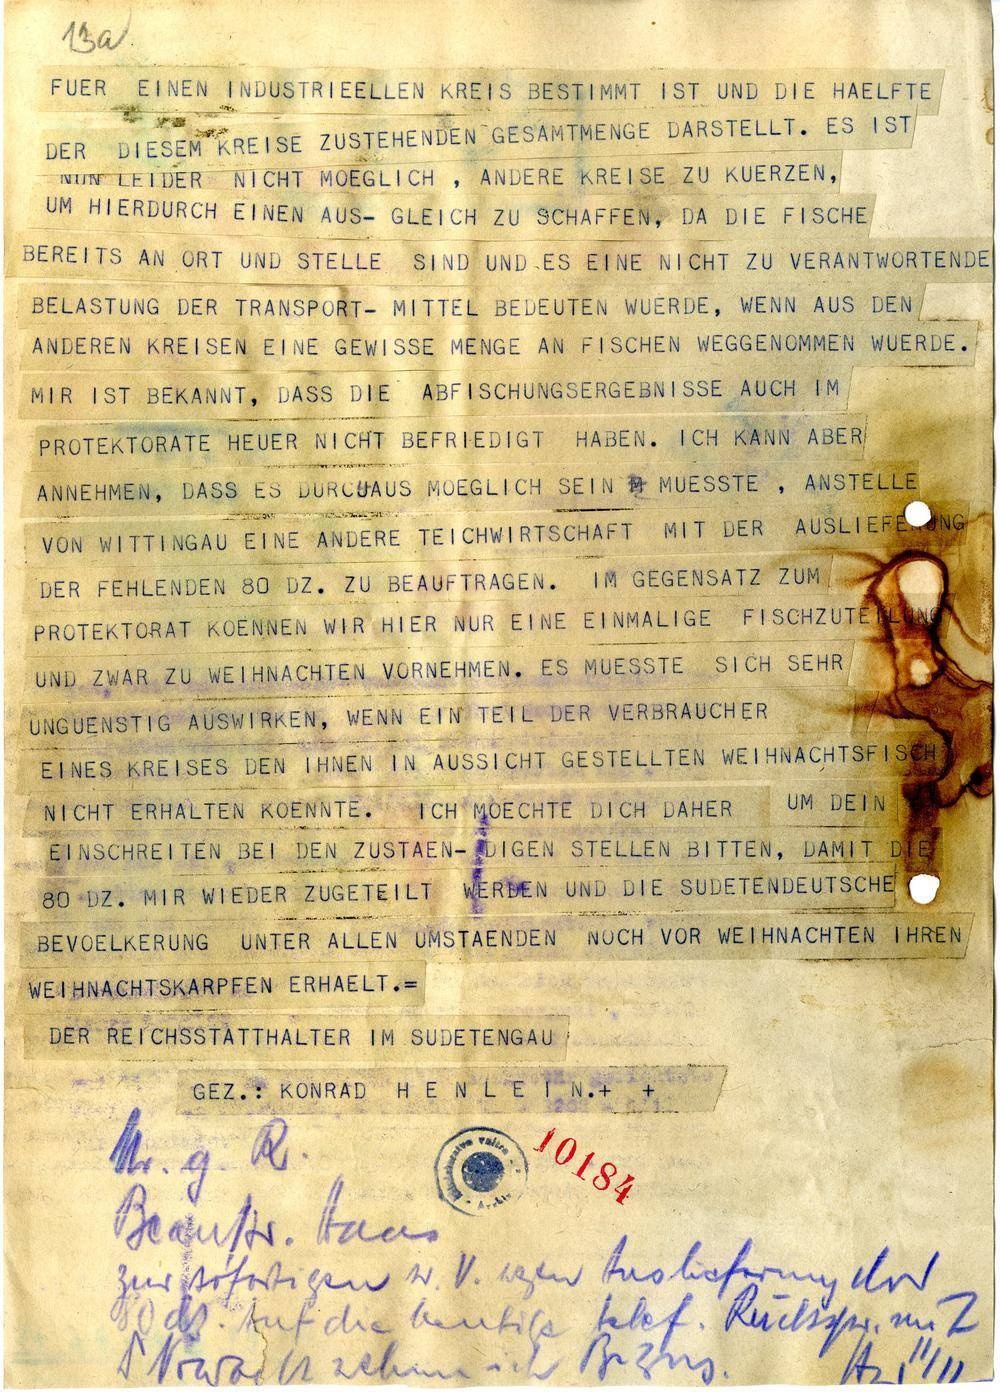 13a
FUER EINEN INDUSTRIEELLEN KREIS BESTIMMT IST UND DIE HAELFTE
DER DIESEM KREISE ZUSTEHENDEN GESAMTMENGE DARSTELLT. ES IST
NUN LEIDER NICHT MOEGLICH , ANDERE KREISE ZU KUERZEN,
UM HIERDURCH EINEN AUS- GLEICH ZU SCHAFFEN, DA DIE FISCHE
BEREITS AN ORT UND STELLE SIND UND ES EINE NICHT ZU VERANTWORTENDE
BELASTUNG DER TRANSPORT- MITTEL BEDEUTEN WUERDE, WENN AUS DEN
ANDEREN KREISEN EINE GEWISSE MENGE AN FISCHEN WEGGENOMMEN WUERDE.
MIR IST BEKANNT, DASS DIE ABFISCHUNGSERGEBNISSE AUCH IM
PROTEKTORATE HEUER NICHT BEFRIEDIGT HABEN. ICH KANN ABER
ANNEHMEN, DASS ES DURCUAUS MOEGLICH SEIN MUESSTE , ANSTELLE
VON WITTINGAU EINE ANDERE TEICHWIRTSCHAFT MIT DER AUSLIEFERUNG
DER FEHLENDEN 80 DZ. ZU BEAUFTRAGEN. IM GEGENSATZ ZUM
PROTEKTORAT KOENNEN WIR HIER NUR EINE EINMALIGE FISCHZUTEILUNG
UND ZWAR ZU WEIHNACHTEN VORNEHMEN. ES MUESSTE SICH SEHR
UNGUENSTIG AUSWIRKEN, WENN EIN TEIL DER VERBRAUCHER
EINES KREISES DEN IHNEN IN AUSSICHT GESTELLTEN WEIHNACHTSFISCH
NICHT ERHALTEN KOENNTE. ICH MOECHTE DICH DAHER UM DEIN
EINSCHREITEN BEI DEN ZUSTAEN- DIGEN STELLEN BITTEN, DAMIT DIE
80 DZ. MIR WIEDER ZUGETEILT WERDEN UND DIE SUDETENDEUTSCHE
BEVOELKERUNG UNTER ALLEN UMSTAENDEN NOCH VOR WEIHNACHTEN IHREN
WEIHNACHTSKARPFEN ERHAELT.=
DER REICHSSTATTHALTER IM SUDETENGAU
GEZ.: KONRAD H E N L E I N.+ +
g. R.
10184
zur sofortigen Auslieferung der
80 dz. Auf die heutige telef. Rückspr. mit
nehme ich Bezug.